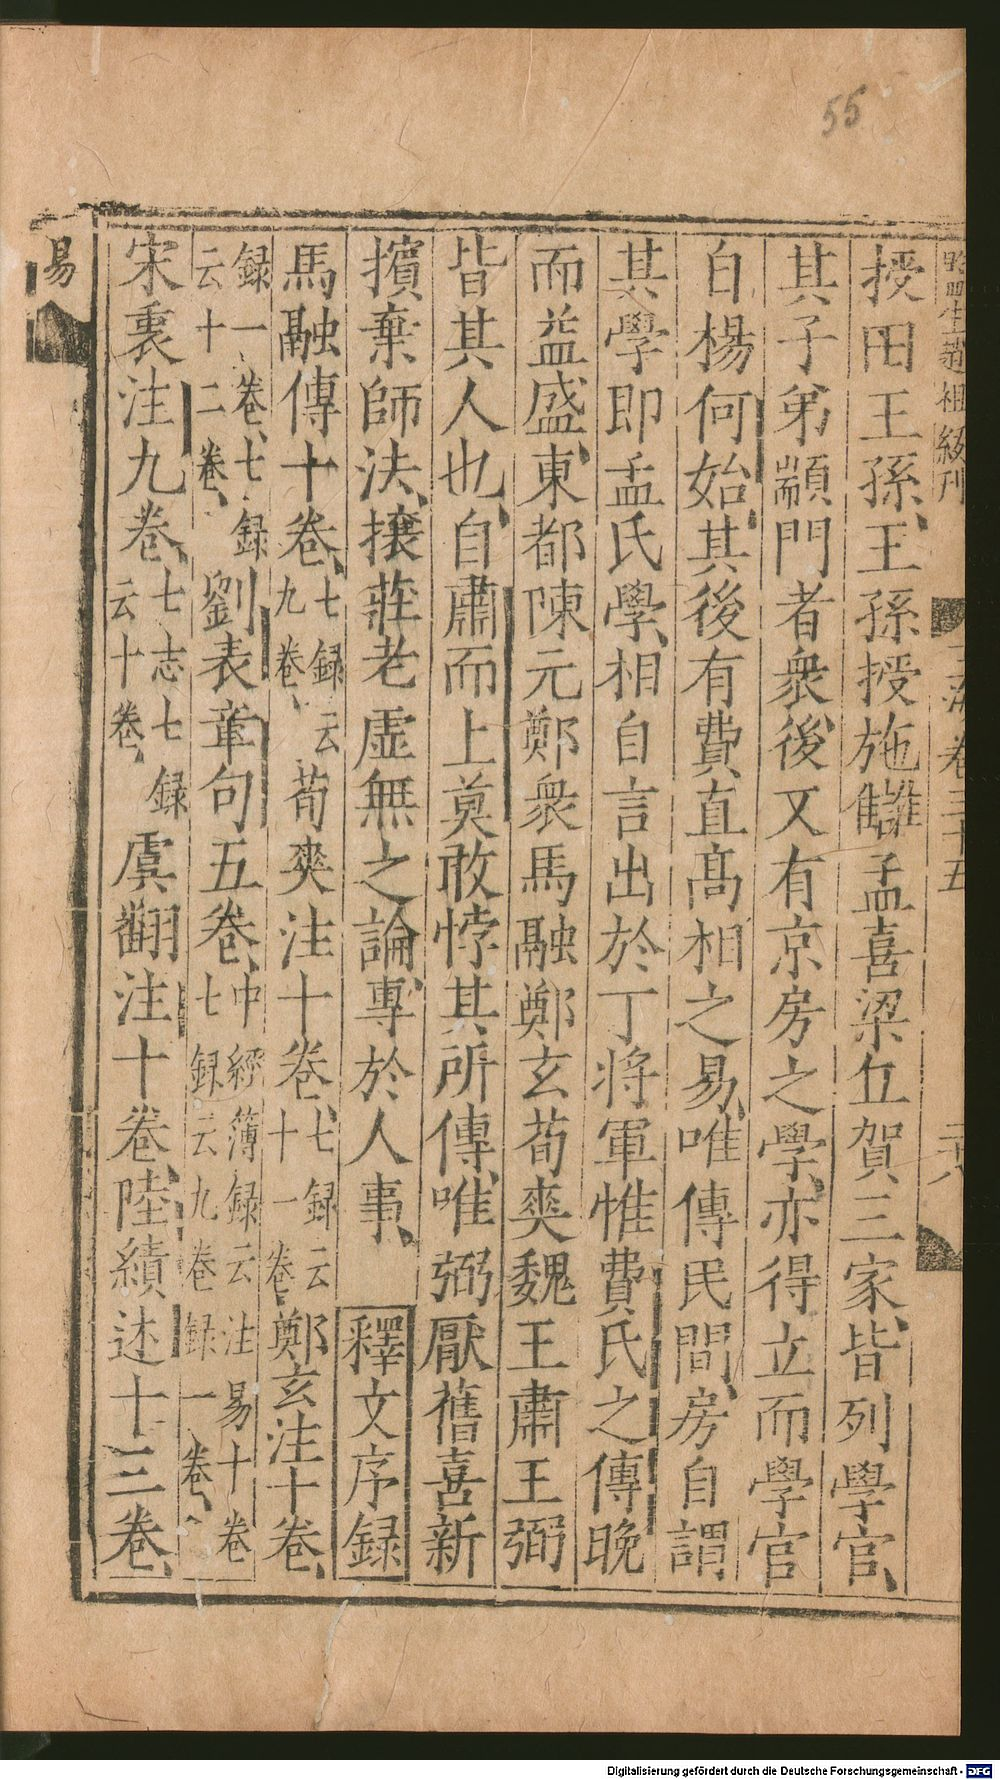 55
監生趙祖級刊
玉海卷三十五
二六
授田王孫王孫授施讎孟喜梁丘賀三家皆列學官
其子弟顓門者衆後又有京房之學亦得立而學官
自楊何始其後有費直高相之易唯傳民間房自謂
其學即孟氏學相自言出於丁將軍惟費氏之傳晚
而益盛東都陳元鄭衆馬融鄭玄荀爽魏王肅王弼
皆其人也自肅而上莫敢悖其所傳唯弼厭舊喜新
擯棄師法攘莊老虛無之論專於人事 釋文序録
馬融傳十卷七録云九卷荀爽注十卷七録云十一卷鄭玄注十卷
録一卷七録云十二卷劉表章句五卷中經簿録云注易十卷七録云九卷録一卷
宋衷注九卷七志七録云十卷虞翻注十卷陸績述十三卷
易
Digitalisierung gefördert durch die Deutsche Forschungsgemeinschaft - DFG